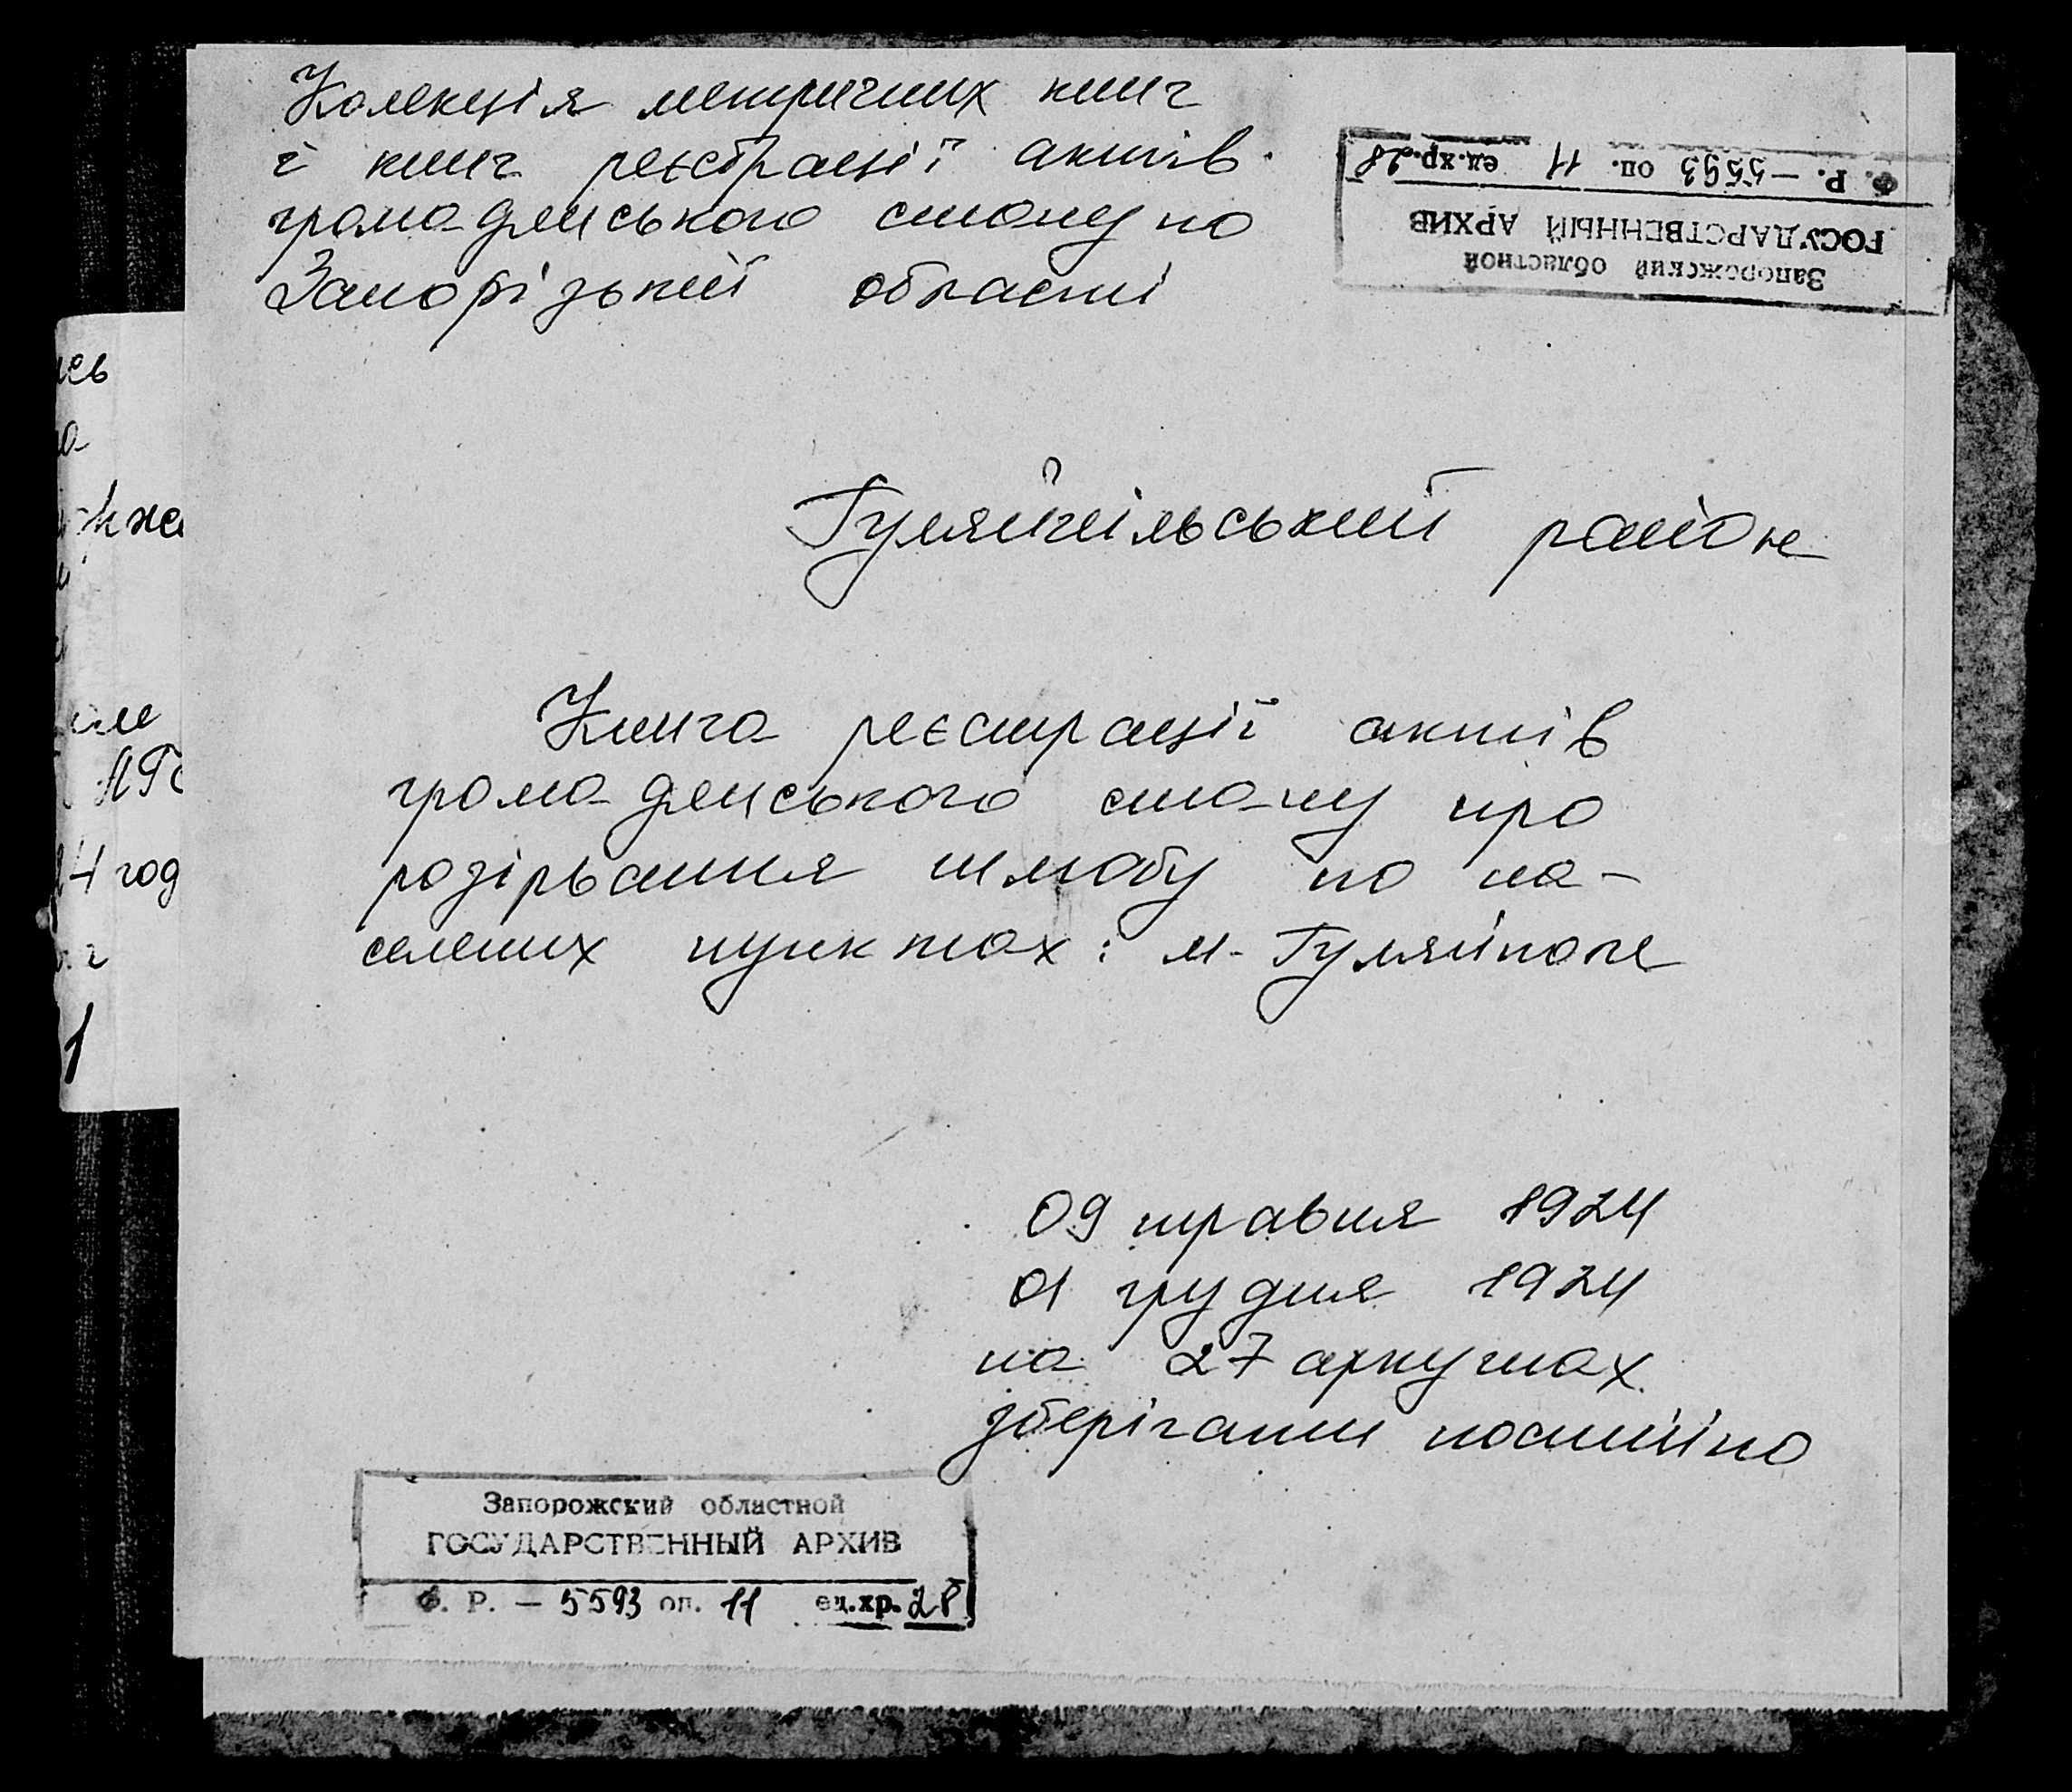 Колекція метричних книг
і книг реєстрації актів
громадянського стану по
Запорізькій області
Ф. Р. – 5593 оп. 11 ед.хр. 28
ГОСУДАРСТВЕННЫЙ АРХИВ
Запорожский областной
Гуляйпільський район
Книга реєстрації актів
громадянського стану про
розірвання шлюбу по на-
селених пунктах: м. Гуляйполе
09 травня 1924
01 грудня 1924
на 27 аркушах
зберігати постійно
Запорожский областной
ГОСУДАРСТВЕННЫЙ АРХИВ
Ф. Р. – 5593 оп. 11 ед.хр. 28
24 год
1